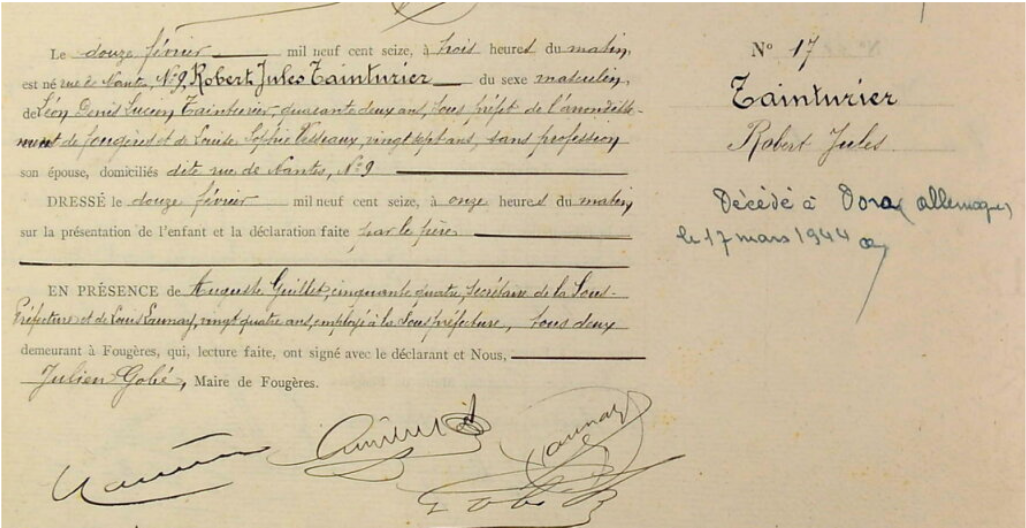 Le douze février mil neuf cent seize, à trois heures du matin,
est né rue de Nantes, Nº 9, Robert Jules Tainturier du sexe masculin,
de Léon Denis Lucien Tainturier, quarante deux ans, sous préfet de l'arrondisse-
ment de Fougères et de Louise Sophie Vesseaux, vingt sept ans, sans profession
son épouse, domiciliés dite rue de Nantes, Nº 9
DRESSÉ le douze février mil neuf cent seize, à onze heures du matin,
sur la présentation de l'enfant et la déclaration faite par le père
EN PRÉSENCE de Auguste Guillet, cinquante quatre, secrétaire de la Sous-
Préfecture et de Louis Launay, vingt quatre ans, employé à la Sous préfecture, tous deux
demeurant à Fougères, qui, lecture faite, ont signé avec le déclarant et Nous,
Julien Gobé, Maire de Fougères.
Nº 17
Tainturier
Robert Jules
Décédé à Dora (allemagne)
le 17 mars 1944
Launay
Gobé